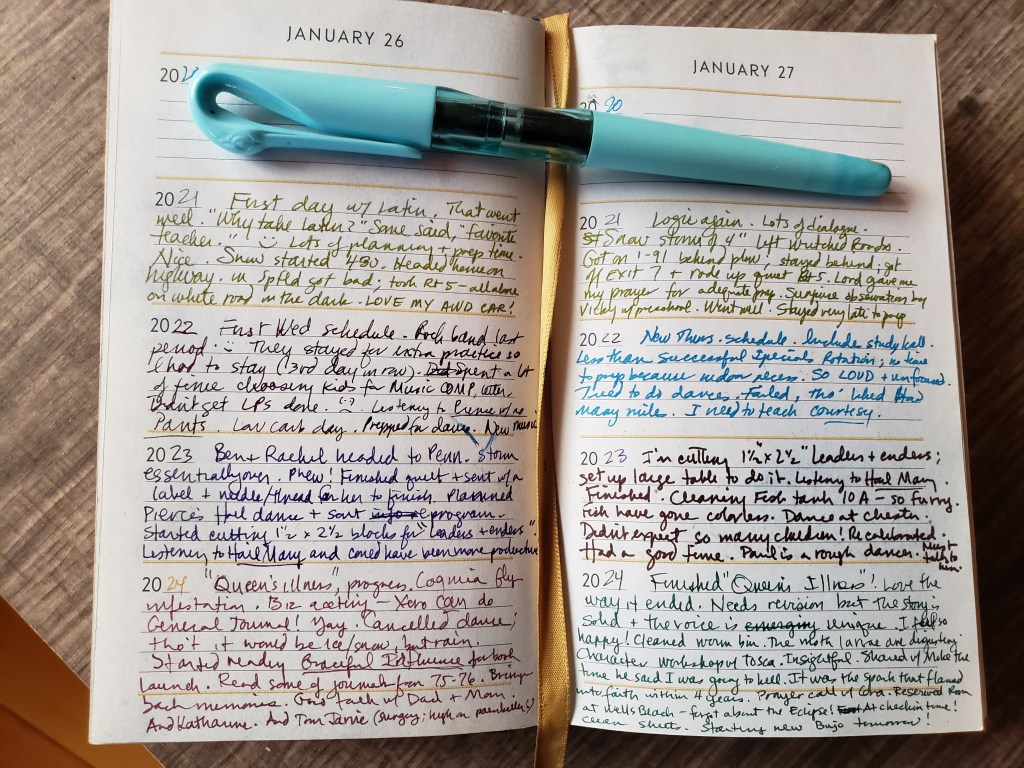 JANUARY 26
2020
2021 First day w/ Latin. That went
well. "Why take Latin?" Some said, "favorite
teacher." :) Lots of planning + prep time.
Nice. Snow started 4:30. Headed home on
highway. in Spfld got bad; took Rt 5 - all alone
on white road in the dark. LOVE MY AWD CAR!
2022 First Wed schedule. Rock band last
period. :) They stayed for extra practice so
I had to stay (3rd day in row). Spent a lot
of time choosing kids for Music COMP,
Didn't get LPs done. Listening to
Pants. Low carb day. Prepped for dance. New music
2023 Ben + Rachel headed to Penn. Storm
essentially over. Phew! Finished quilt + sent w/ a
label + needle/thread for her to finish. Planned
Pierce's Hall dance + sent program.
Started cutting 1 1/2 x 2 1/2 blocks for "leaders + enders"
Listening to Hail Mary and could have been more productive
2024 "Queen's illness", progress. fly
infestation. B12 - Xero can do
General Journal! Yay. Cancelled dance;
tho't it would be ice/snow, but rain.
Started reading Graceful Influence for book
launch. Read some of journals from 75-76. Brings
back memories. Good talk w/ Dad + Mom.
And Katharine. And Tom Jarvie (surgery; high on painkillers)
JANUARY 27
2020
2021 Logic again. Lots of dialogue.
Snow storm of 4" left wretched roads.
Got on I-91 behind plow! stayed behind; got
off EXIT 7 + rode up quiet Rt 5. Lord gave me
my prayer for adequate prep. Surprise observation by
Vicky w/ preschool. Went well. Stayed very late to prep
2022 New Thurs. schedule. Include study hall.
Less than successful Specials Rotation; no time
to prep because indoor recess. So LOUD + unfocused.
Tried to do dances. Failed, tho' liked
Many mile. I need to teach courtesy.
2023 I'm cutting 1 1/2 x 2 1/2" leaders + enders;
set up large table to do it. Listening to Hail Mary
Finished. Cleaning Fish tank 10A - so furry.
Fish have gone colorless. Dance at Chester.
Didn't expect so many children! Recalibrated.
Had a good time. Paul is a rough dancer. Must
talk to
him.
2024 Finished "Queen's Illness"! Love the
way it ended. Needs revision but the story is
solid + the voice is unique. I feel so
happy! Cleaned worm bin. The moth larvae are disgusting.
Character workshop w/ Tosca. Insightful. Shared w/ Mike the
time he said I was going to hell. It was the spark that flamed
into faith within 4 years. Prayer call w/ Cora. Reserved Room
at Wells Beach - forgot about the Eclipse! At checkin time!
clean sheets. Starting new Bujo tomorrow!